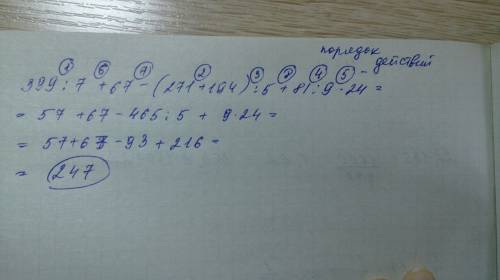 порядок
① ⑥ ⑦ ② ③ ⑧ ④ ⑤ - действий
399 : 7 + 67 - (271 + 194) : 5 + 81 : 9 · 24 =
= 57 + 67 - 465 : 5 + 9 · 24 =
= 57 + 67 - 93 + 216 =
= 247